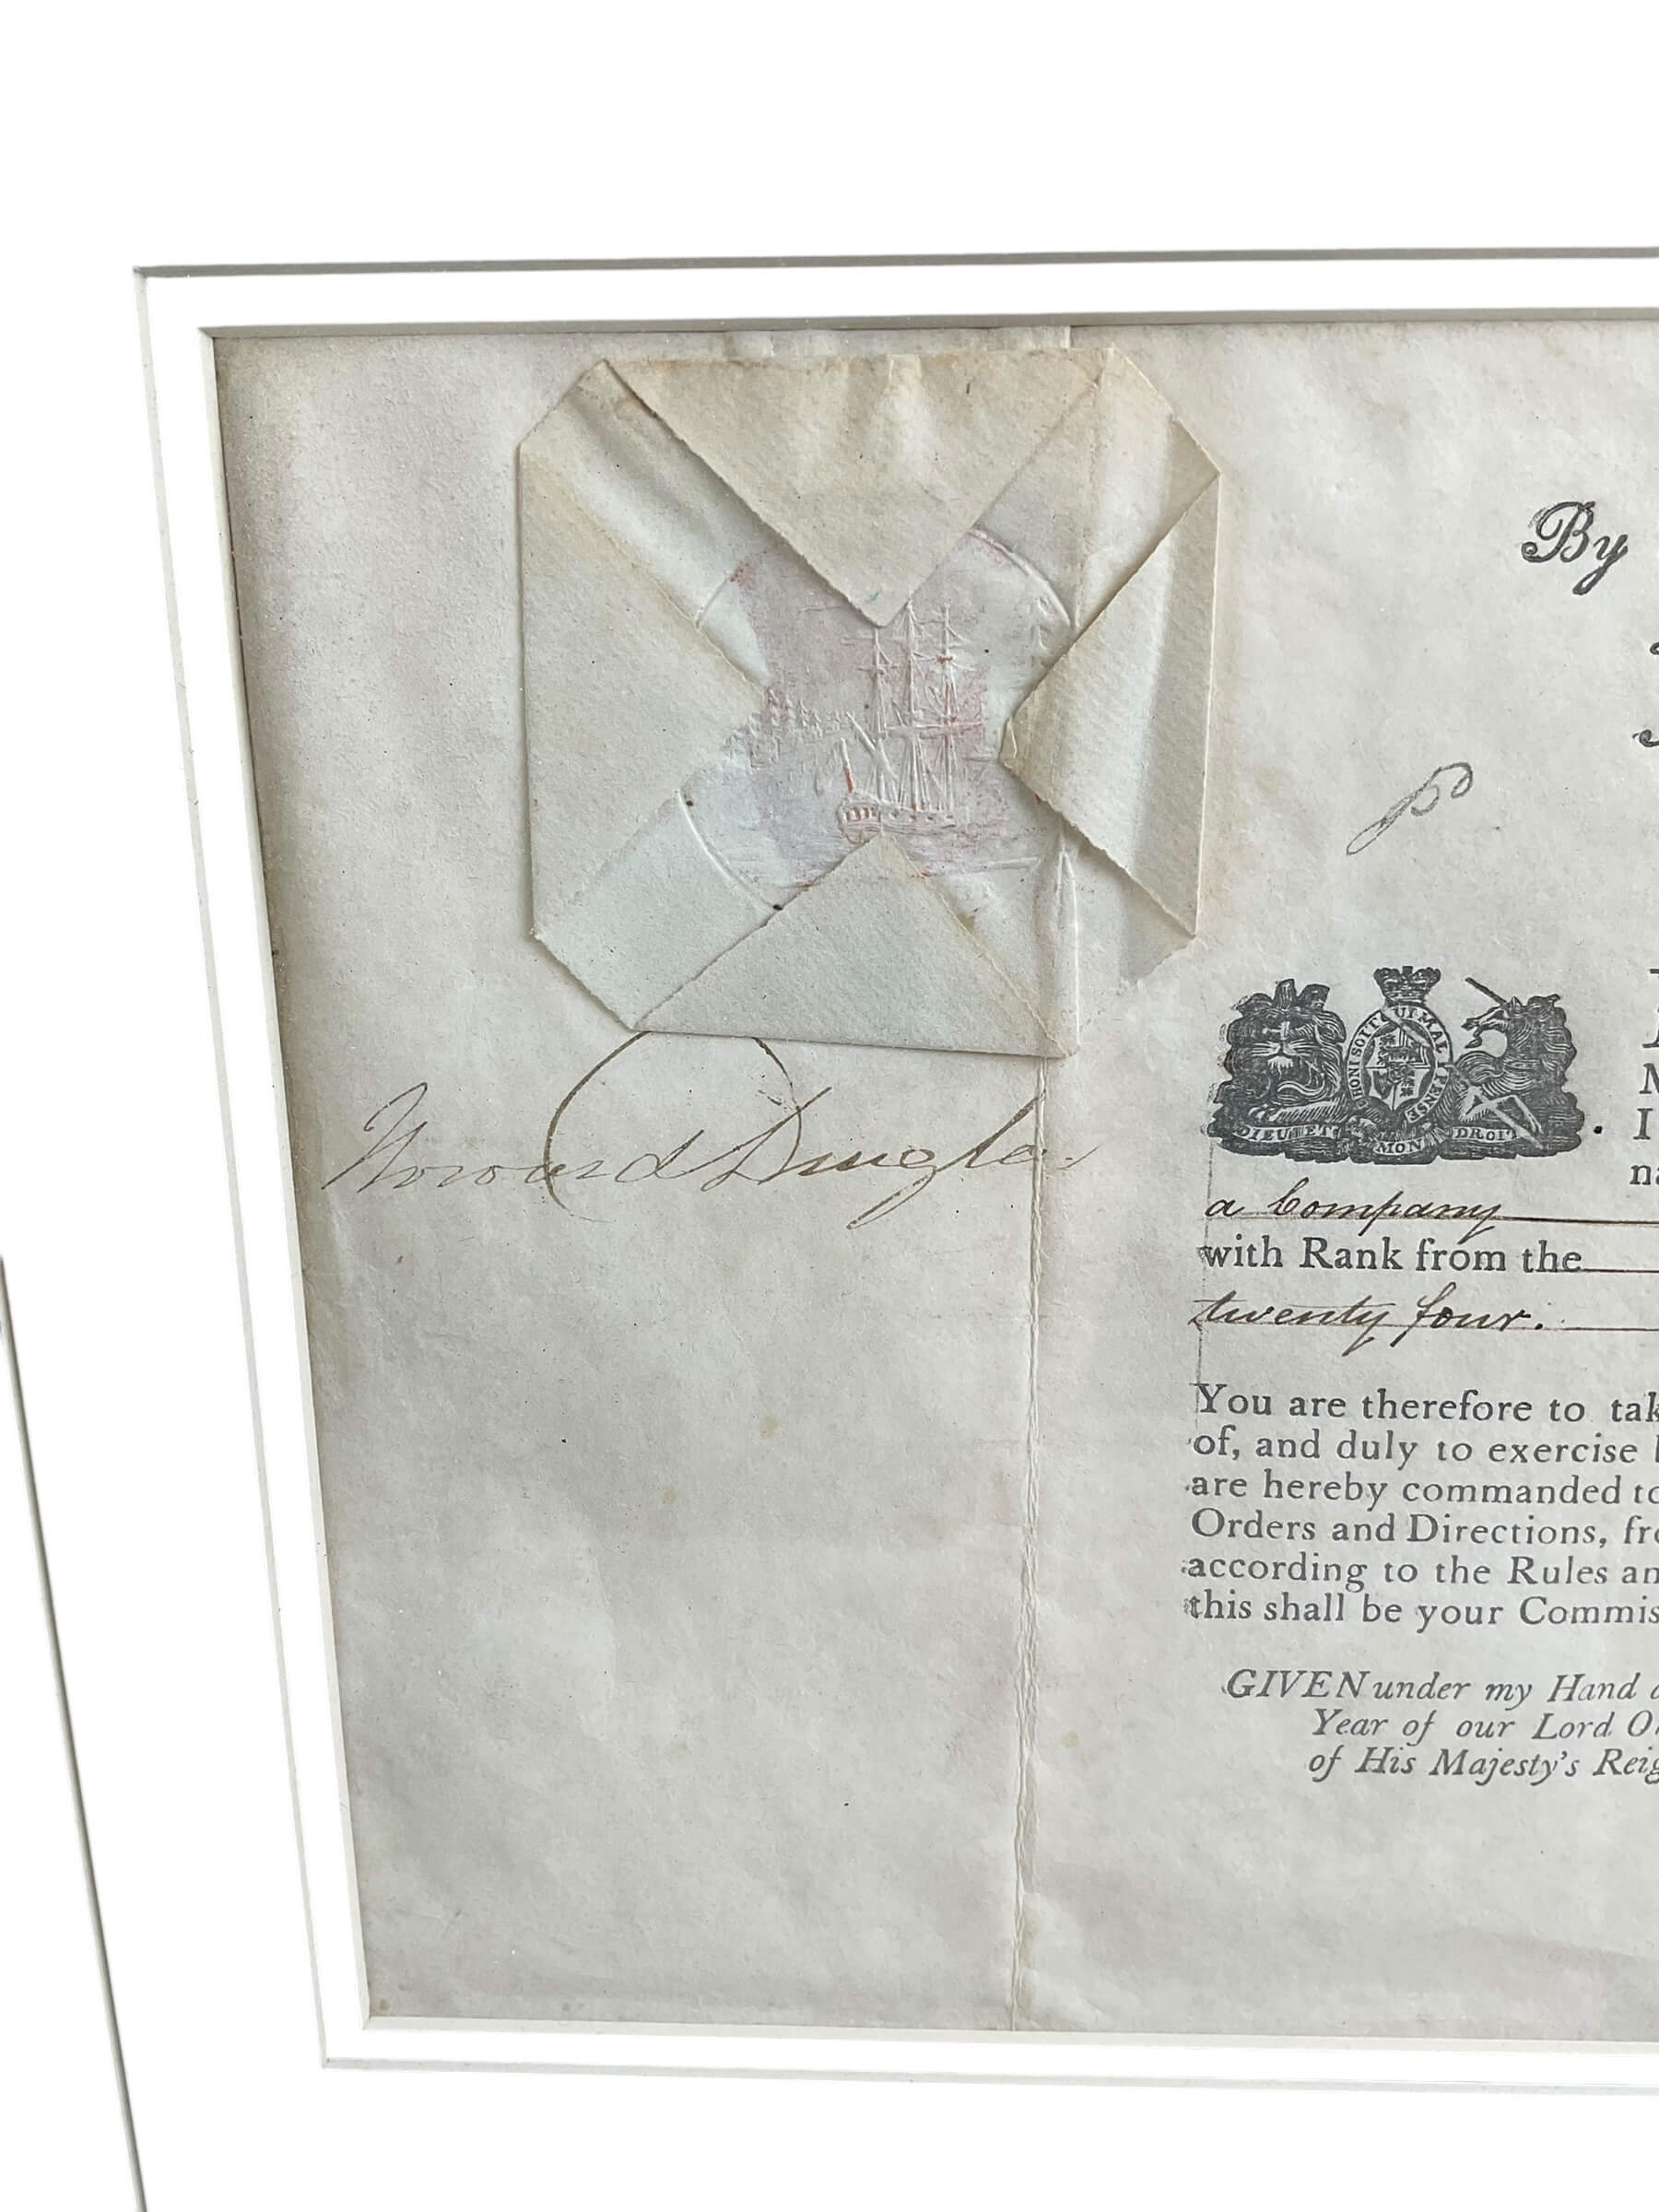 By
HONI SOIT QUI MAL Y PENSE
DIEU ET MON DROIT
Howard Douglas
M
I
na
a Company
with Rank from the
twenty four.
You are therefore to tak
of, and duly to exercise
are hereby commanded to
Orders and Directions, fro
according to the Rules an
this shall be your Commis
GIVEN under my Hand a
Year of our Lord On
of His Majesty's Reig